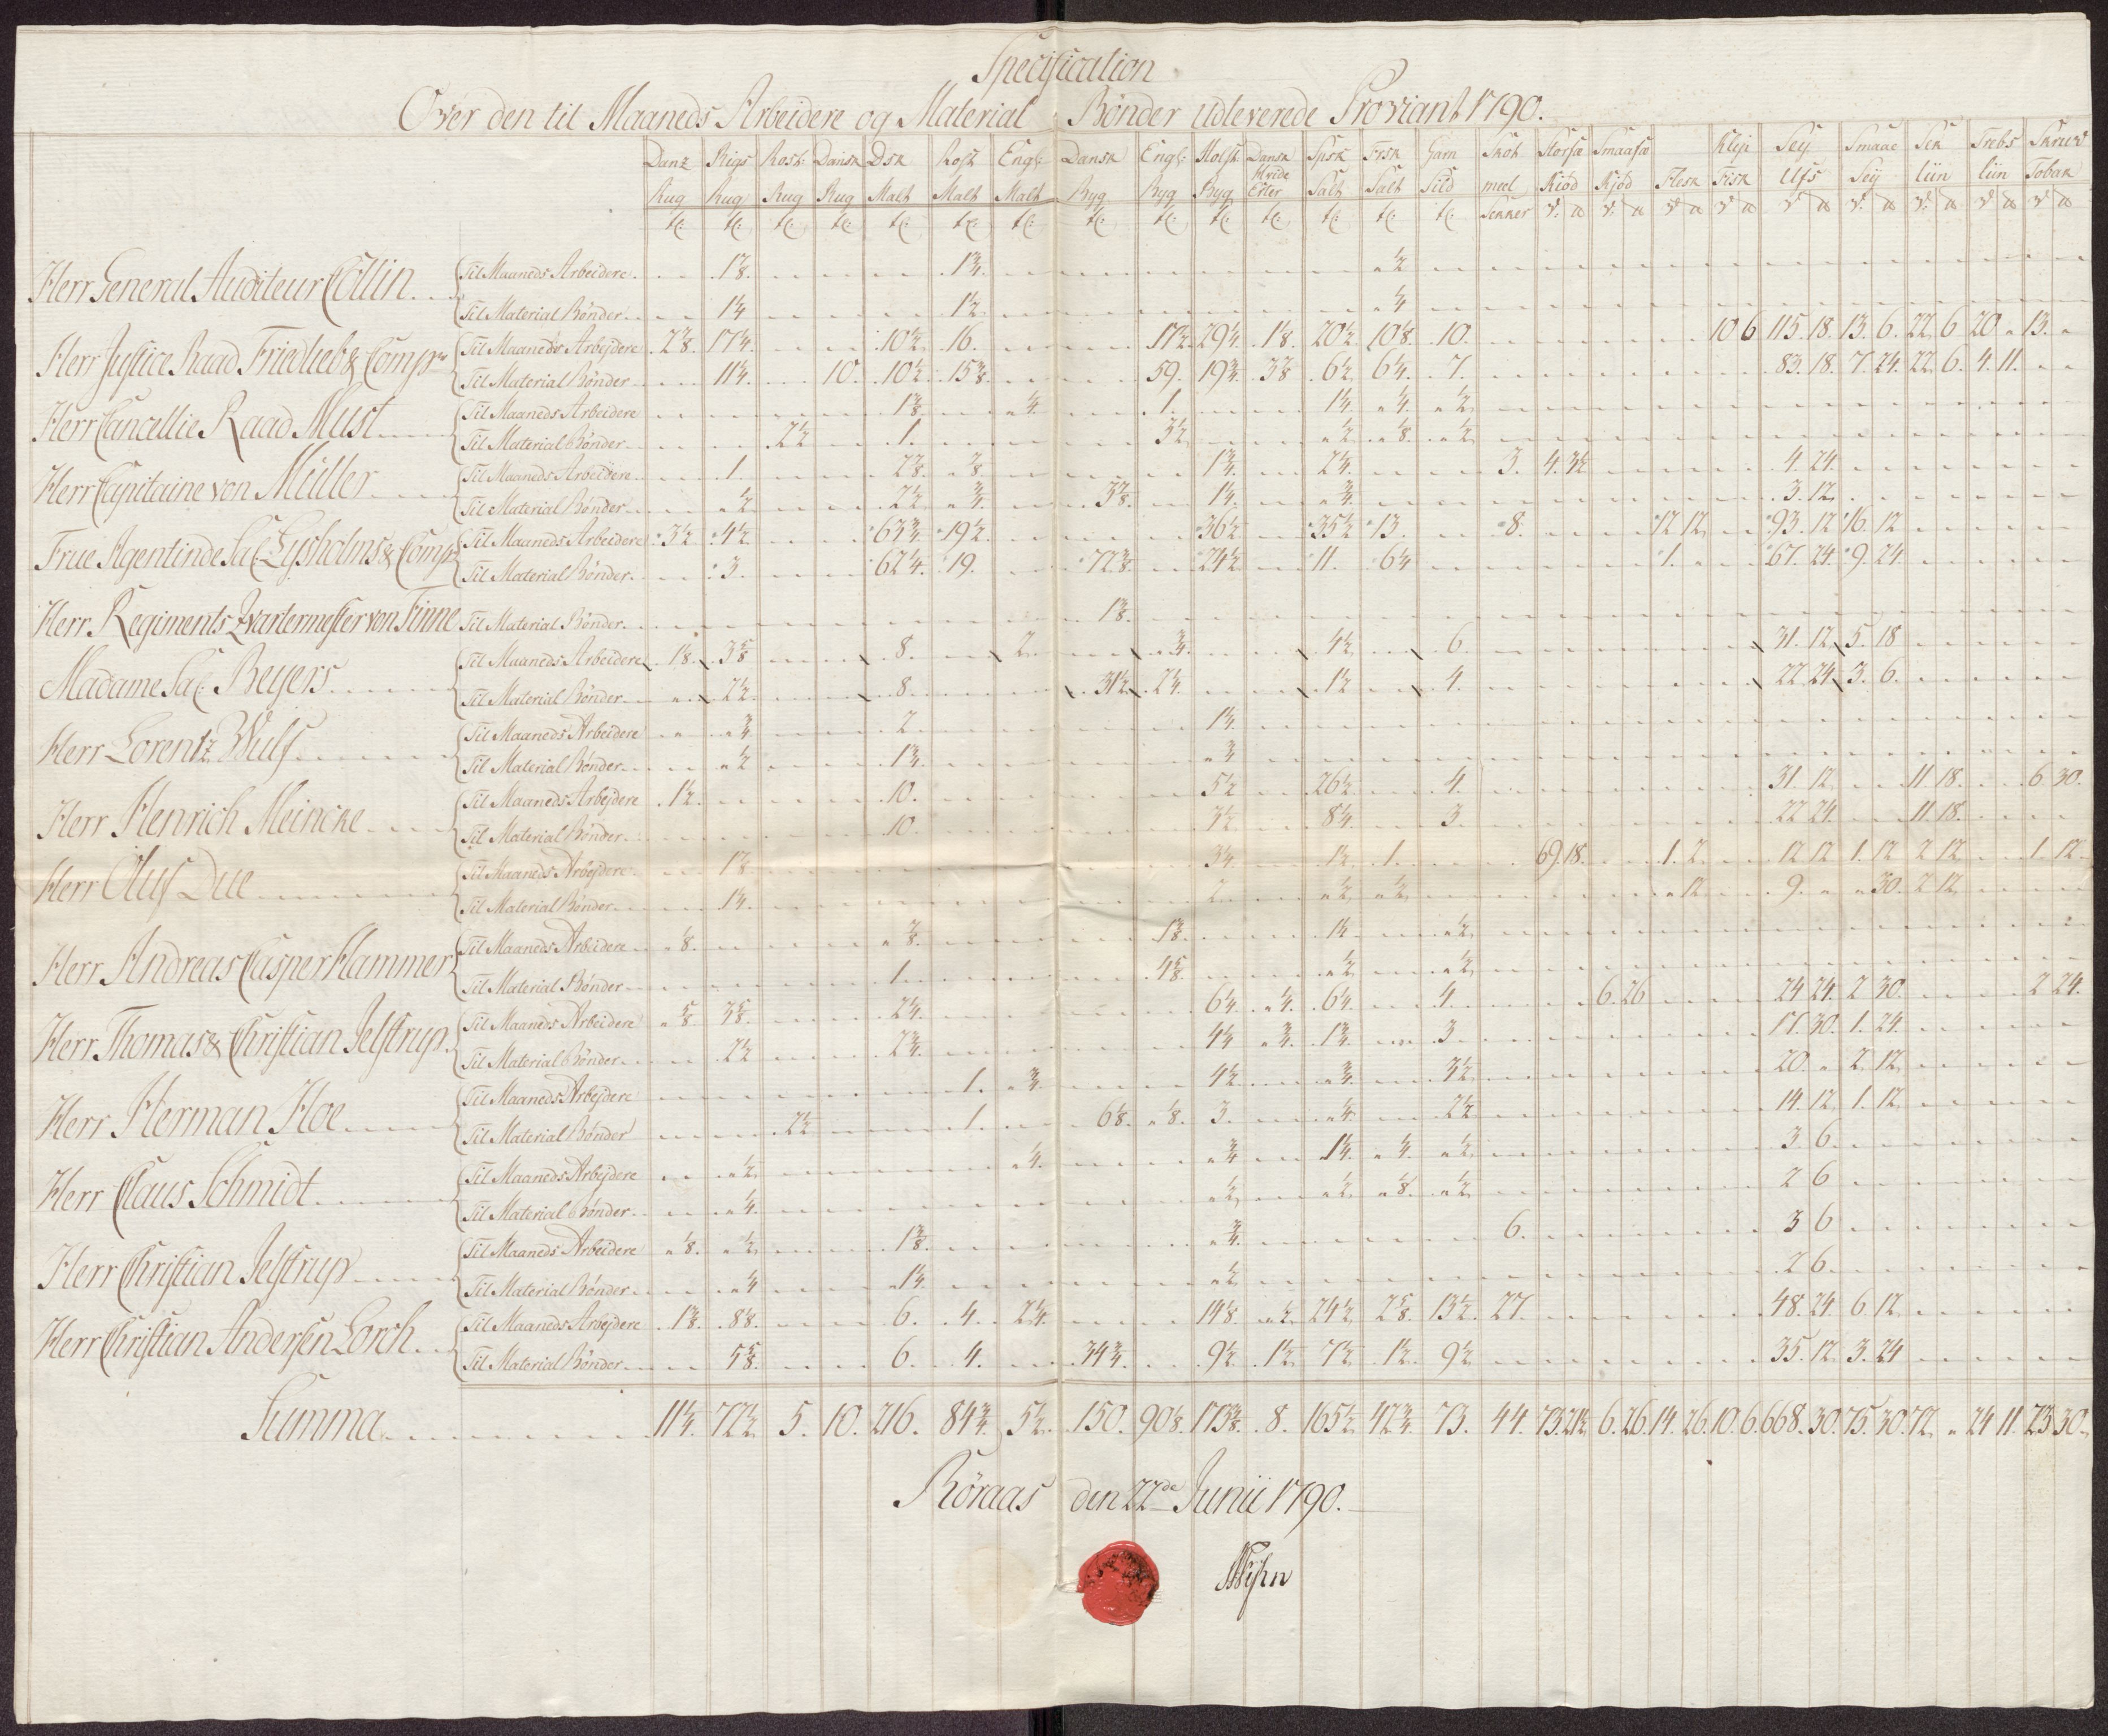 Specification
Over den til Maaneds Arbeidere og Material Bønder Udleverede Proviant 1790.
Danz Rigs Rost: Dansk Dsk Rost Engl: Dansk Engl: Holst: Dansk Spsk Frsk Garn Skot Storsæ Smaasæ Klip Sej Smaae Sek Trebs Skrue
Rug Rug Rug Rug Malt Malt Malt Byg Byg Byg Hvide Erter Salt Salt Sild meel Kiød Kjød Flesk Fisk Ufs Seij liin liin Tobak
Herr General Auditeur Collin
Til Maaneds Arbeidere 1 1/8 1 3/4 1/2
Til Material Bønder 1 1/4 1 1/2 1/4
Herr Justice Raad Friedlieb & Comp
Til Maaneds Arbejdere 2 7/8 17 1/4 10 1/2 16. 17 1/2 29 1/4 1 1/8 20 1/2 10 1/8 10. 10 6 115. 18. 13. 6. 22 6 20 13.
Til Material Bønder 11 1/4 10. 10 1/2 15 3/8 59. 19 3/4 3 7/8 6 1/2 6 1/4 7. 83. 18. 7. 24. 22. 6. 4. 11.
Herr Cancellie Raad Must
Til Maaneds Arbeidere 1 3/8 1/4 1. 1 1/4 1/4 1/2
Til Material Bønder 2 1/2 1. 3 1/2 1/2 1/8 1/2
Herr Capitaine von Müller
Til Maaneds Arbeidere 1. 2 7/8 7/8 1 3/4 2 1/4 3. 4. 3 1/2 4. 24.
Til Material Bønder 1/2 2 1/2 3/4 3 7/8 1 1/4 3/4 3. 12.
Frue Agentinde Sal Lysholms & Comp
Til Maaneds Arbeidere 3 1/2 4 1/2 63 3/4 19 1/2 36 1/2 35 1/2 13. 8. 12 12 93. 12 16. 12
Til Material Bønder 3. 62 1/4 19. 72 3/8 24 1/2 11. 6 1/4 1. 67. 24. 9. 24
Herr Regiments Qvartermester von Finne Til Material Bønder 1 3/8
Madame Sal Beyers
Til Maaneds Arbeidere 1 1/8 3 5/8 8. 2. 3/4 4 1/2 6. 31. 12 5. 18
Til Material Bønder 2 1/2 8. 31 1/2 2 1/4 1 1/2 4. 22 24 3. 6.
Herr Lorentz Wulf
Til Maaneds Arbeidere 3/4 2. 1 1/4
Til Material Bønder 1/2 1 3/4 3/4
Herr Henrich Meincke
Til Maaneds Arbejdere 1 1/2 10. 5 1/2 26 1/2 4. 31. 12 11 18. 6 30.
Til Material Bønder 10. 3 1/2 8 1/4 3. 22 24. 11. 18.
Herr Oluf Due
Til Maaneds Arbejdere 1 7/8 3 1/4 1 1/2 1. 69. 18. 1. 2. 12 12 1. 12 2 12 1. 12.
Til Material Bønder 1 1/4 2. 1/2 1/2 12. 9. 30. 2 12.
Herr Andreas Casper Hammer
Til Maaneds Arbeidere 1/8 7/8 1 3/8 1 1/2 1/2
Til Material Bønder 1. 4 5/8 1/2 1/2
Herr Thomas & Christian Jelstrup
Til Maaneds Arbeidere 5/8 3 5/8 2 1/4 6 1/4 1/4 6 1/4 4. 6. 26 24 24. 2 30. 2 24.
Til Material Bønder 2 1/2 2 3/4 4 1/4 3/4 1 3/4 3. 17. 30. 1. 24.
Herr Herman Hoe
Til Maaneds Arbejdere 1. 3/4 4 1/2 3/4 3 1/2 20. 2. 12.
Til Material Bønder 2 1/2 1. 6 1/8 1/8 3. 1/4 2 1/2 14. 12. 1. 12.
Herr Claus Schmidt
Til Maaneds Arbejdere 1/2 1/4 3/4 1 1/4 1/4 1/2 3 6.
Til Material Bønder 1/4 1/2 1/2 1/8 1/2 2 6
Herr Christian Jelstrup
Til Maaneds Arbeidere 1/8 1/2 1 3/8 3/4 6. 3 6
Til Material Bønder 1/4 1 1/4 1/2 2 6.
Herr Christian Andersen Lorch
Til Maaneds Arbejdere 1 3/8 8 1/8 6. 4. 2 1/4 14 1/8 1/2 24 1/2 2 5/8 13 1/2 27. 48. 24 6. 12
Til Material Bønder 5 5/8 6. 4. 34 3/4 9 1/2 1 1/2 7 1/2 1 1/2 9 1/2 35. 12. 3. 24
Summa 11 1/4 77 1/2 5. 10. 216. 84 3/4 5 1/2 150. 90 1/8 173 3/8 8. 165 1/2 42 3/4 73. 44. 73. 21 1/2 6. 26. 14. 26. 10. 6. 668. 30. 75. 30. 72. 24 11. 23. 30.
Røraas den 22de Junii 1790.